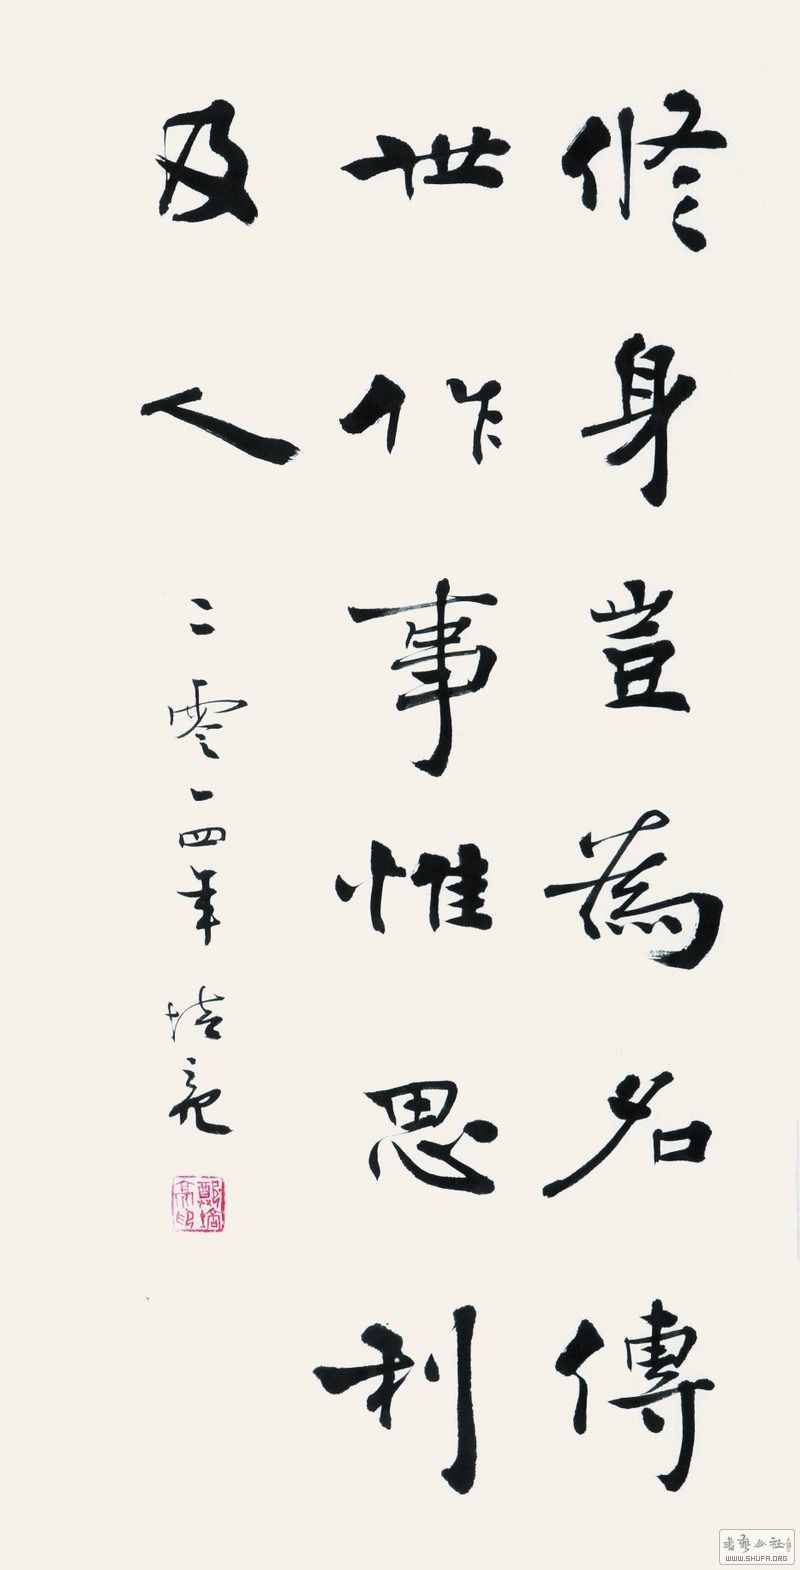 修身豈為名傳
世作事惟思利
及人
二零一四年 培亮
鄭培亮印
書法公社
WWW.SHUFA.ORG